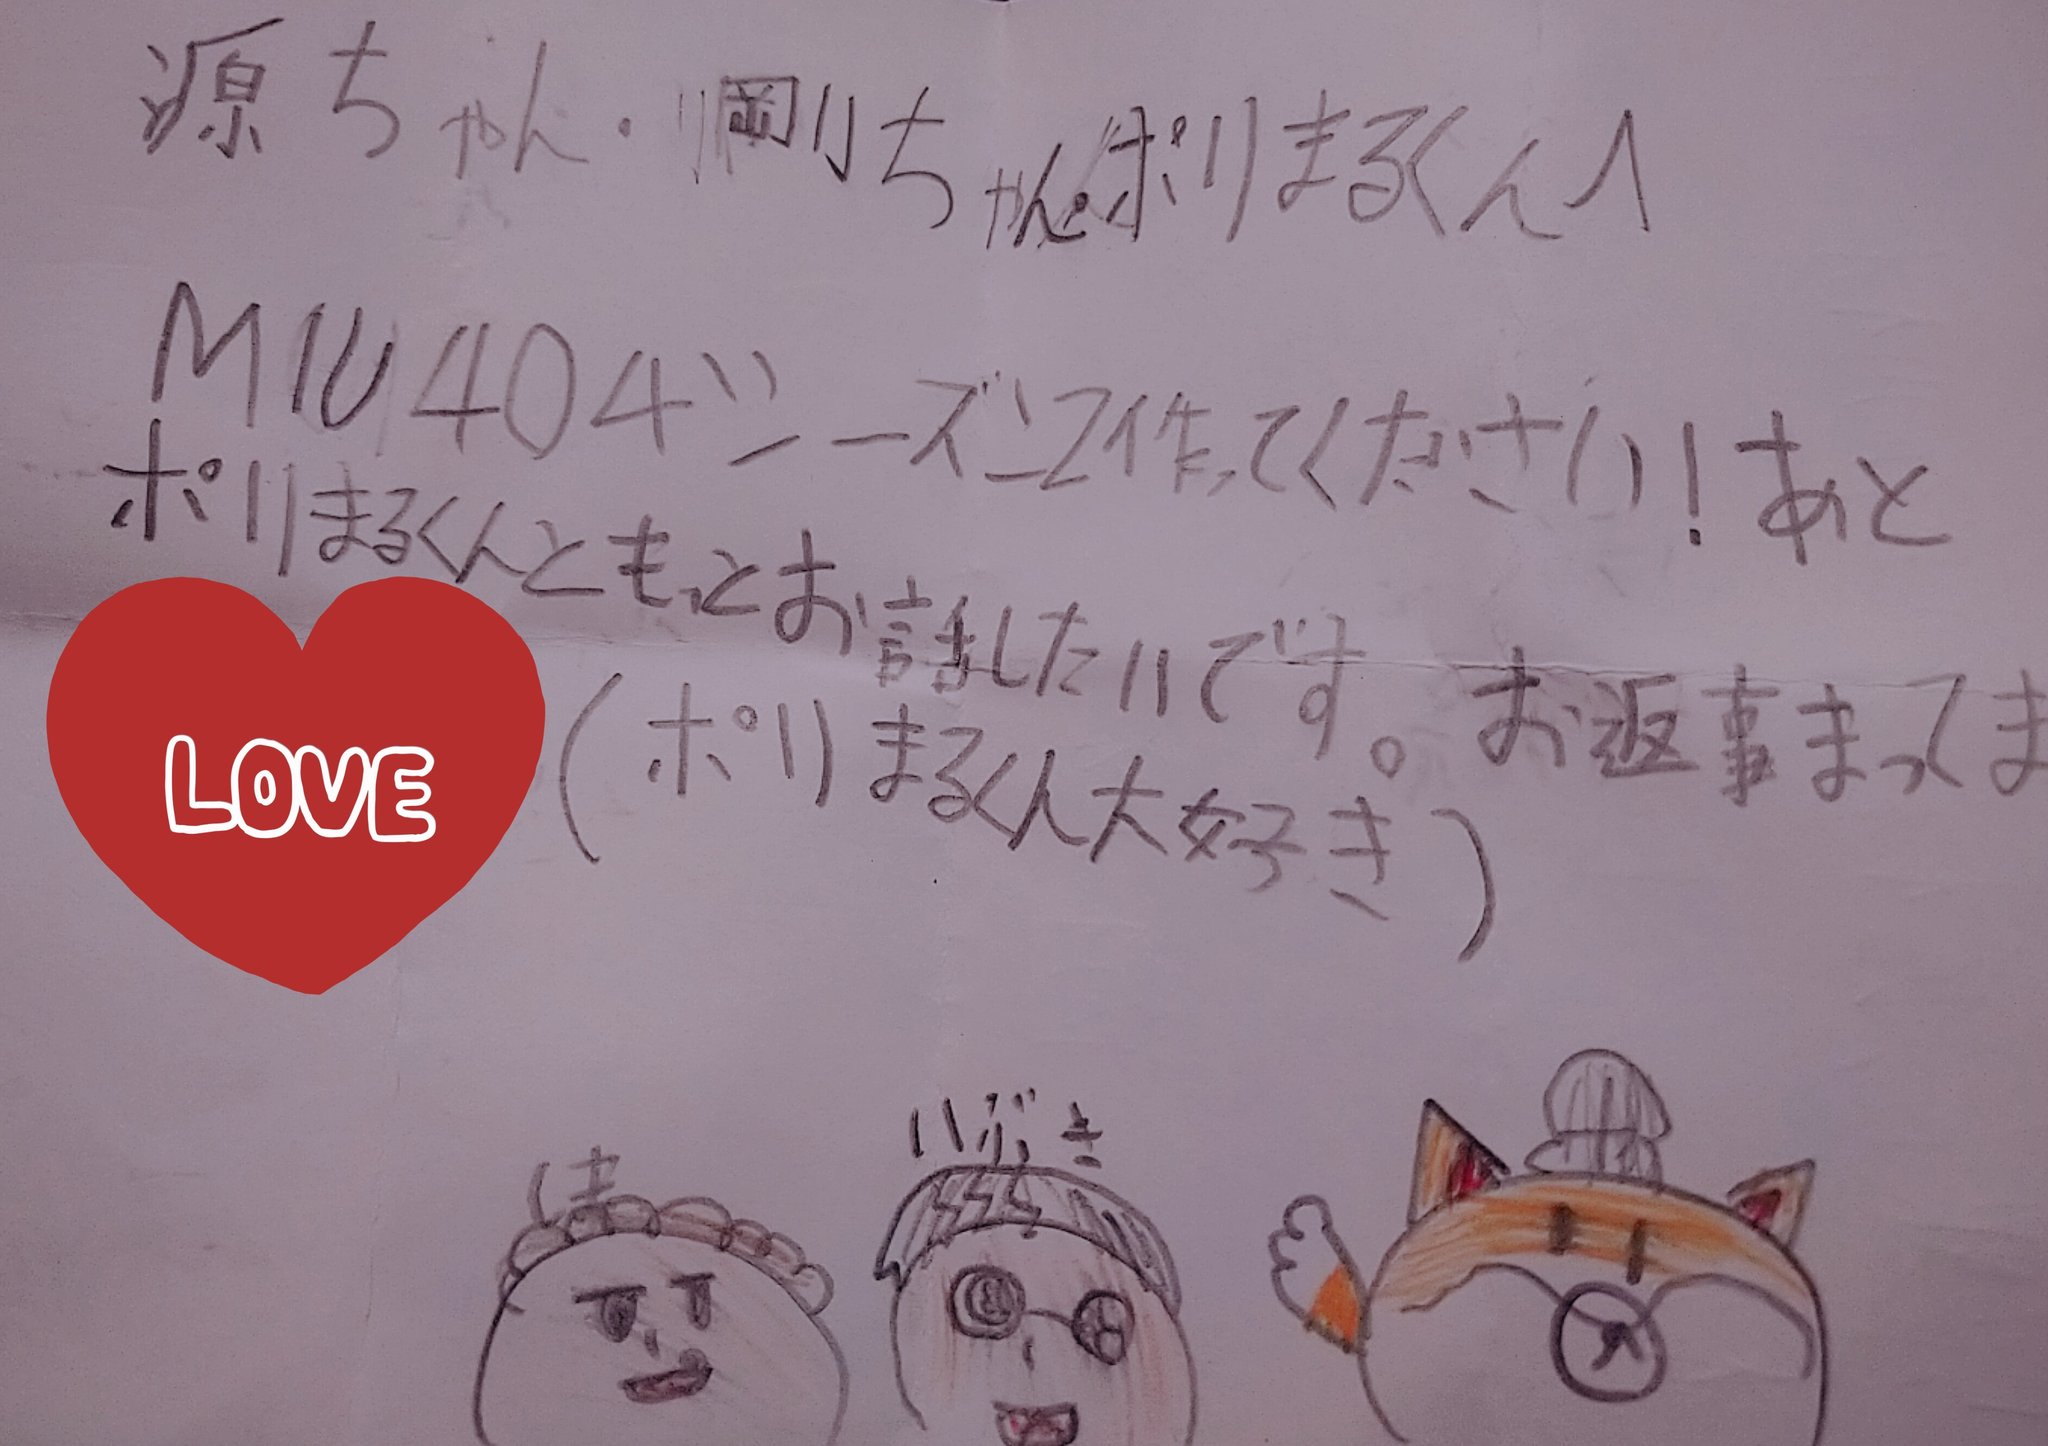 源ちゃん・剛ちゃん・ポリまるくんへ
MIU404シーズン2作ってください!あと
ポリまるくんともっとお話したいです。お返事まってま
(ポリまるくん大好き)
LOVE
しま
いぶき